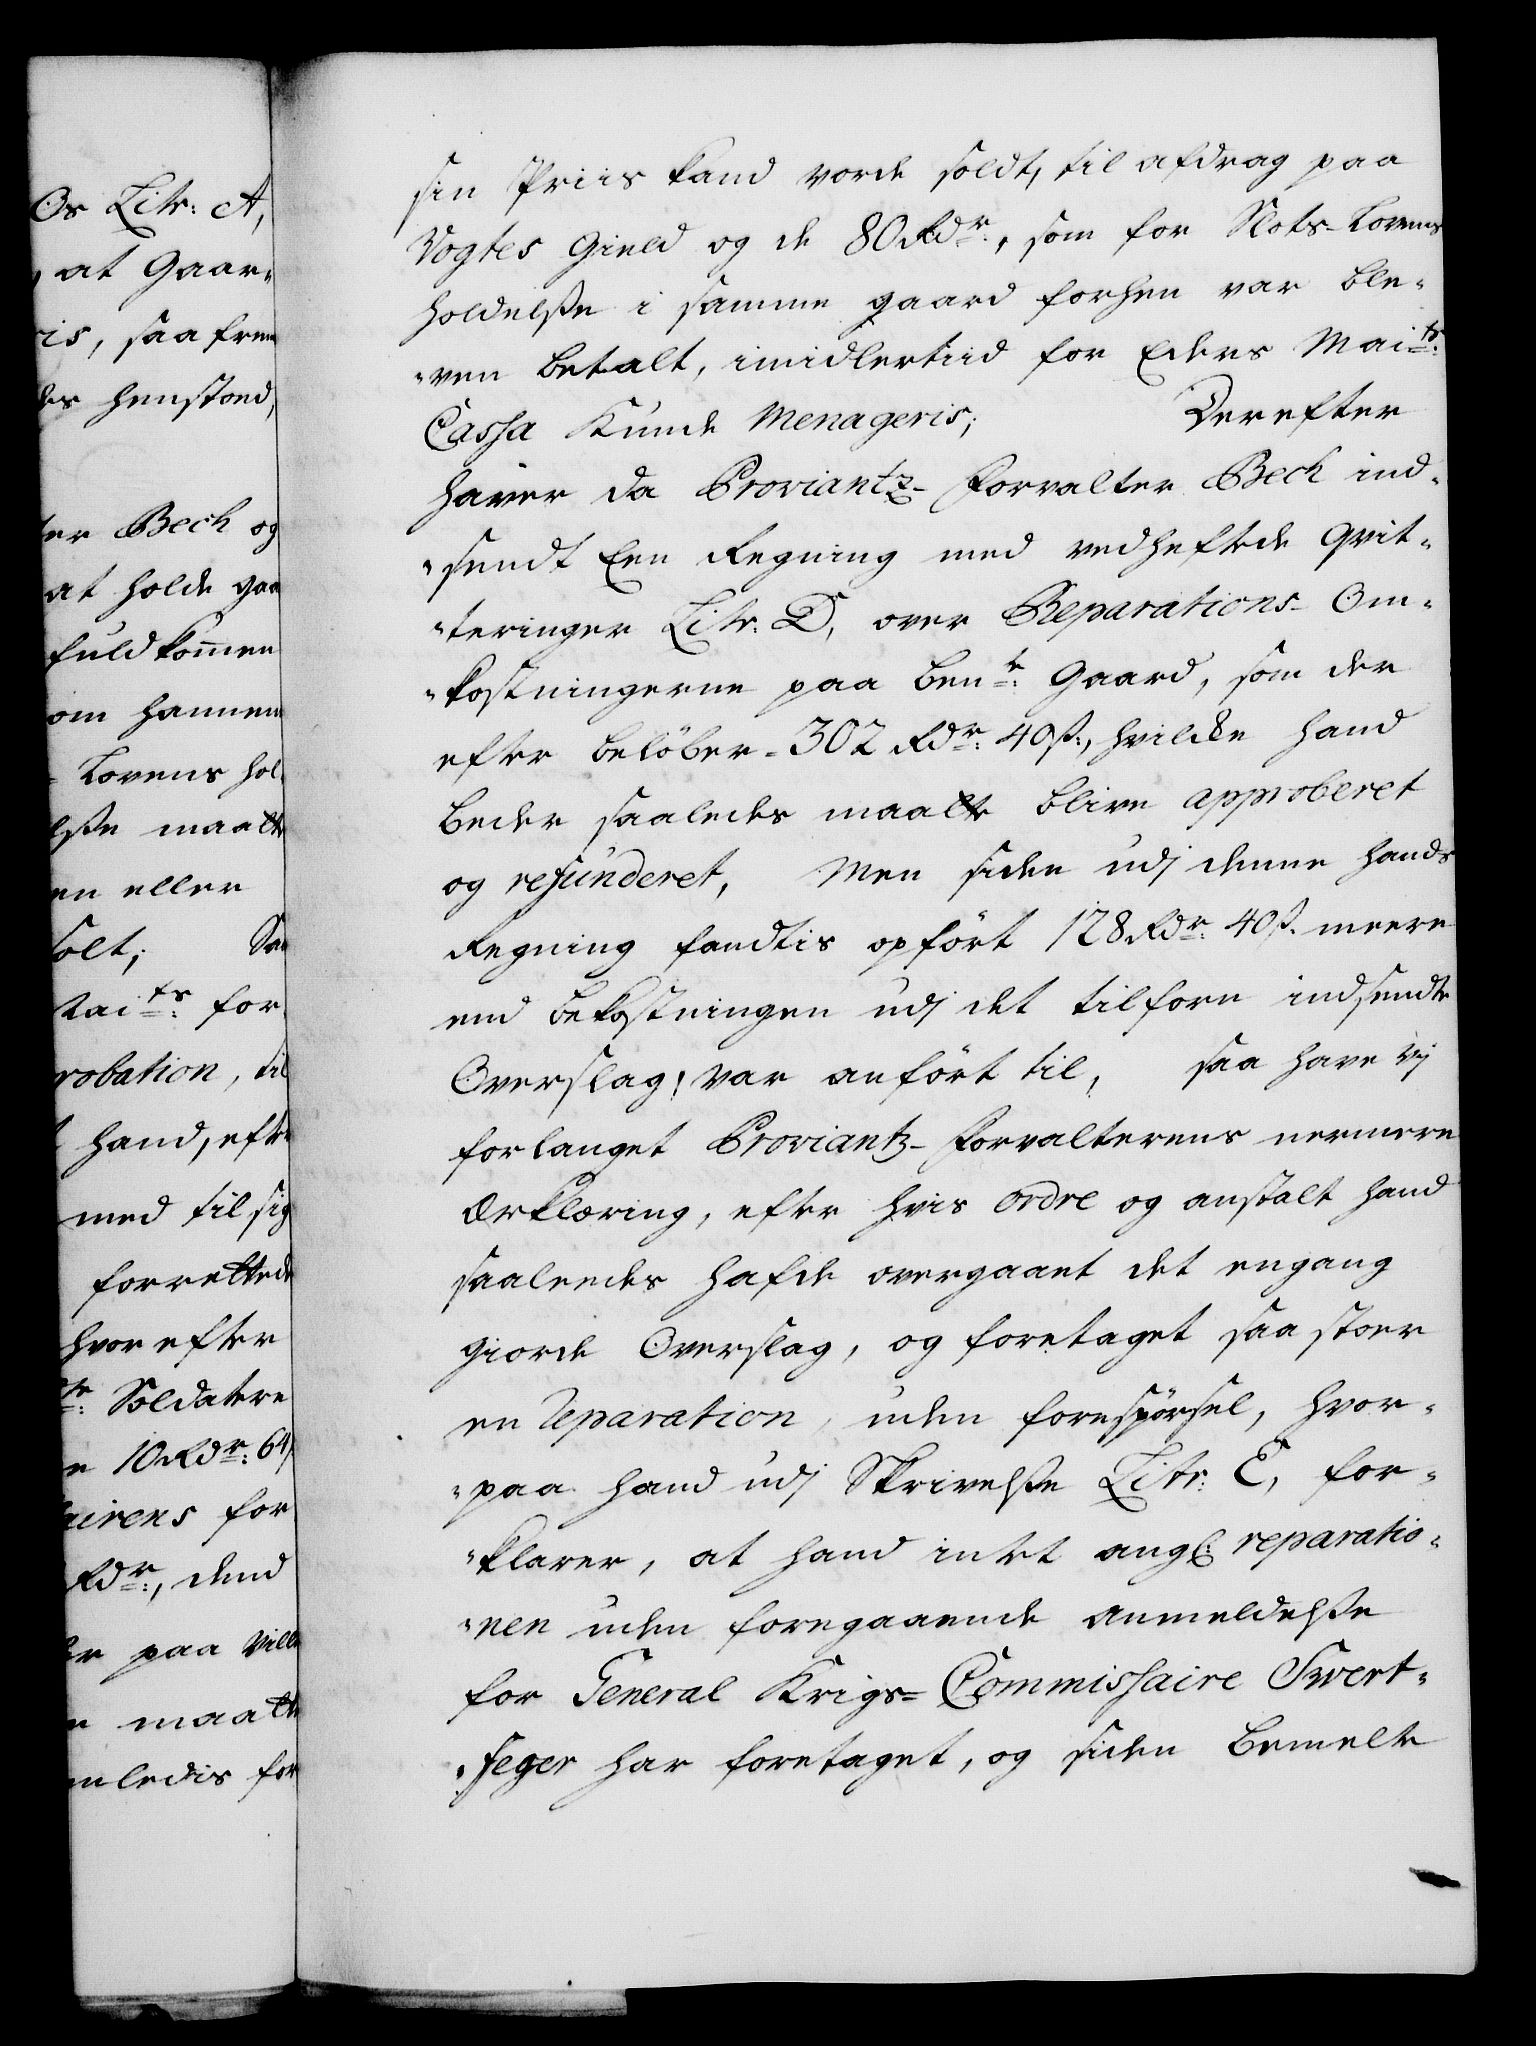 Os Litr: A,
at Gaar„
ris, saafrem
des henstoed,
ter Bech og
at holde gaa
fuldkommen
om hannem
Lovens hol„
lsße maatte
en eller
solt; Saa
Mai ts: for
robation, til
hand, efter
med til sig
forrettede
hvorefter
te: Soldatere
e 10 Rdr: 64
airens for
Rdr:, dend
paa ville
maatte
mledis for
sin Priis kand vorde soldt, til afdrag paa
Vogtes Gield og de 80 Rdr:, som for Slots-Lovens
holdelsße i samme gaard forhen var ble„
„ven betalt, imidlertiid for Eders Maits:
Cassa kunde menageris; Derefter
haver da Proviantz-Forvalter Bech ind„
„sendt Een Regning med vedheftede Qvit„
„teringer Litr: D, over Reparations-Om„
„kostningerne paa bente: Gaard, som der
efter belöber 302 Rdr: 40 ß:, hvilcke hand
beder saaledes maatte blive approberet
og refunderet, Men siden udj denne hands
Regning fandtis opført 128 Rdr: 40 ß. meere
end bekostningen udj det tilforn indsendte
Overslag, var anført til, saa have vj
forlanget Proviantz-Forvalterens nermere
Erklæring, efter hvis ordre og anstalt hand
saaleedes hafde overgaaet det engang
giorde Overslag, og foretaget saa stoer
en Reparation, uden forespörsel, hvor„
„paa hand udj Skrivelsße Litr: E, for„
„klarer, at hand intet angl: reparatio„
„nen uden foregaaende anmeldelsße
for General Krigs-Commissaire Svert„
„feger har foretaget, og siden bemelte